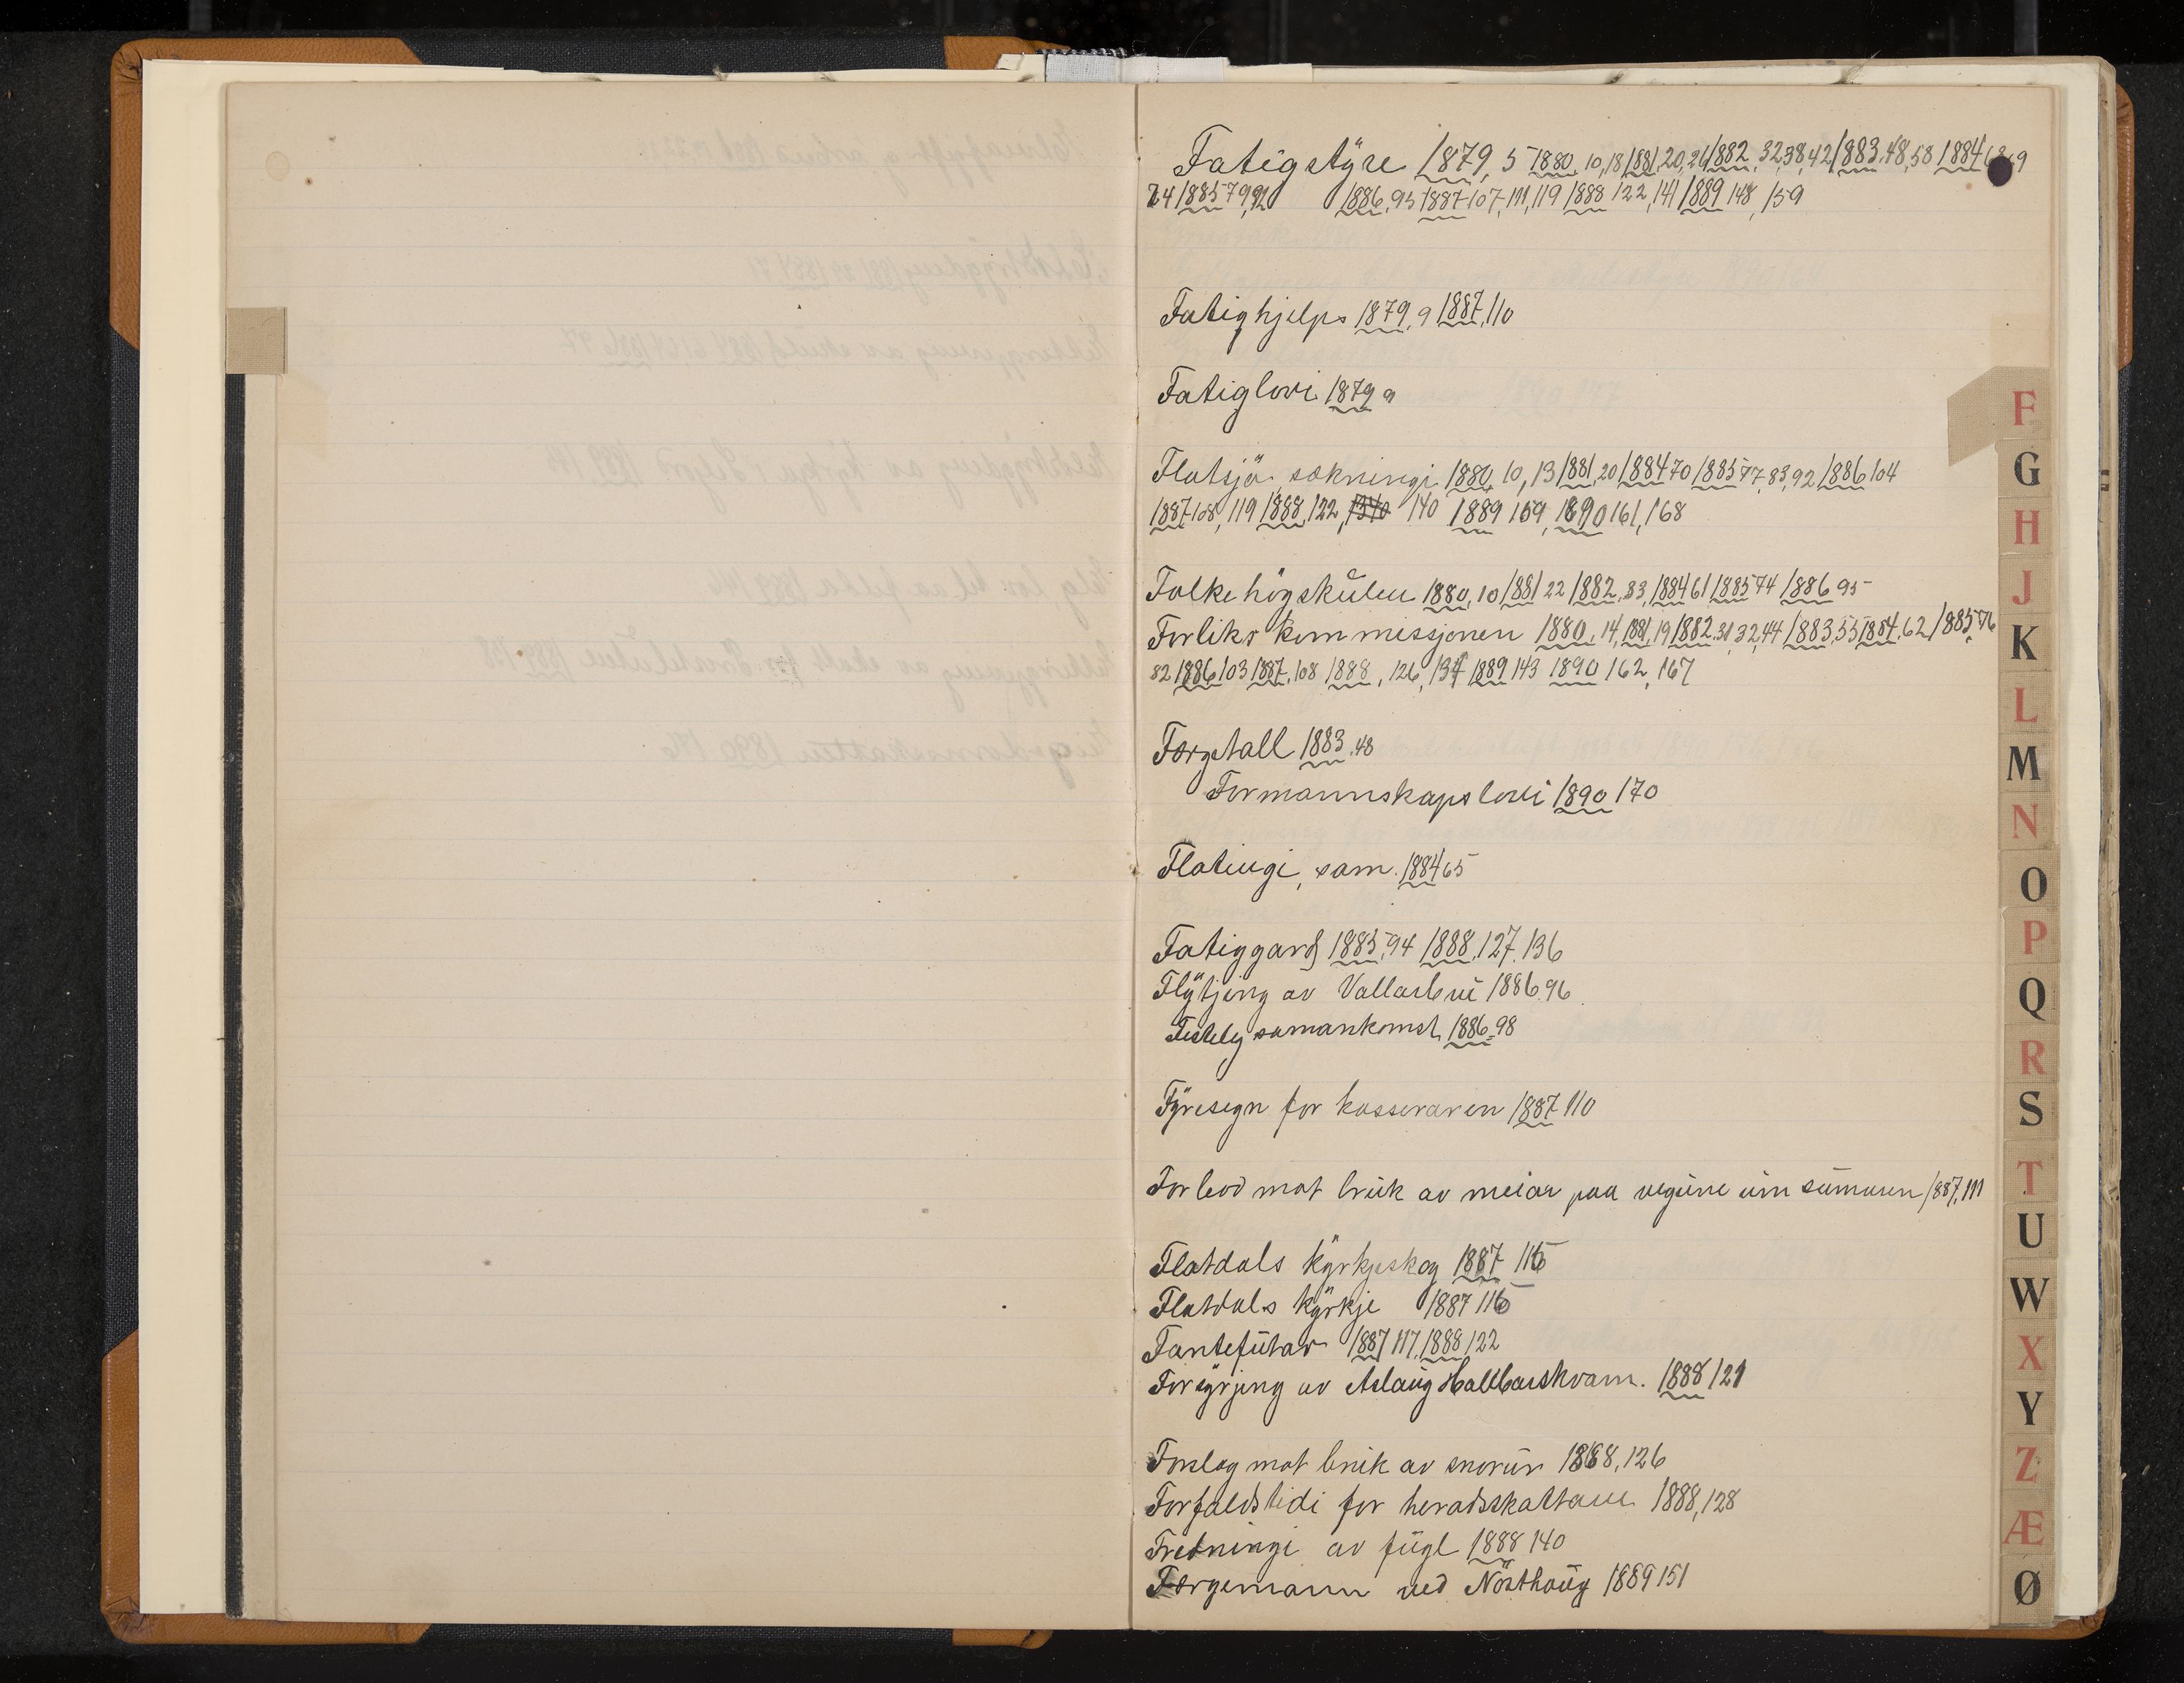 Fatigstÿre 1879, 5 1880, 10, 18 1881, 20, 26 1882, 32, 38, 42 1883, 48, 58 1884 69
74 1885 79, 92 1886, 95 1887 107, 111, 119 1888 122, 141 1889 148, 159
Fatighjelps 1879, 9 1887, 110
Fatiglovi 1879 9
Flatsjå søkningi 1880, 10, 13 1881, 20 1884 70 1885 77, 83, 92 1886 104
1887 108, 119 1888, 122, 140 1889 159, 1890 161, 168
Folkehögskŭlen 1880, 10 1881 22 1882, 33, 1884 61 1885 74 1886 95
Forlikskommissjonen 1880, 14, 1881, 19 1882, 31, 32, 44 1883, 55 1884, 62 1885, 76
82 1886, 103 1887, 108 1888, 126, 134 1889 143 1890 162, 167
Forgstall 1883, 48
Formannskapslovi 1890 170
Flatingi, sam. 1884 65
Fatiggard 1885, 94 1888, 127, 136
Flÿtjing av 1886, 96
Festleg samankomst 1886, 98
Fÿresegn for kasseraren 1887 110
Forbod mot brŭk av meiar paa vegŭne ŭm sŭmaren 1887, 111
Flatdals kÿrkjeskog 1887 115
Flatdals kÿrkje 1887 115
Fantefŭtar 1887 117, 1888 122
Forsÿrjing av Aslaŭg Hallbaskvam. 1888 121
Forslag mot brŭk av 1888, 126
Forfaldstidi for heradsskattane 1888, 128
Fredningi av fŭgl 1888 140
Færgemann ved Nösthaŭg 1889 151
F
G
H
J
K
L
M
N
O
P
Q
R
S
T
U
W
X
Y
Z
Æ
Ø